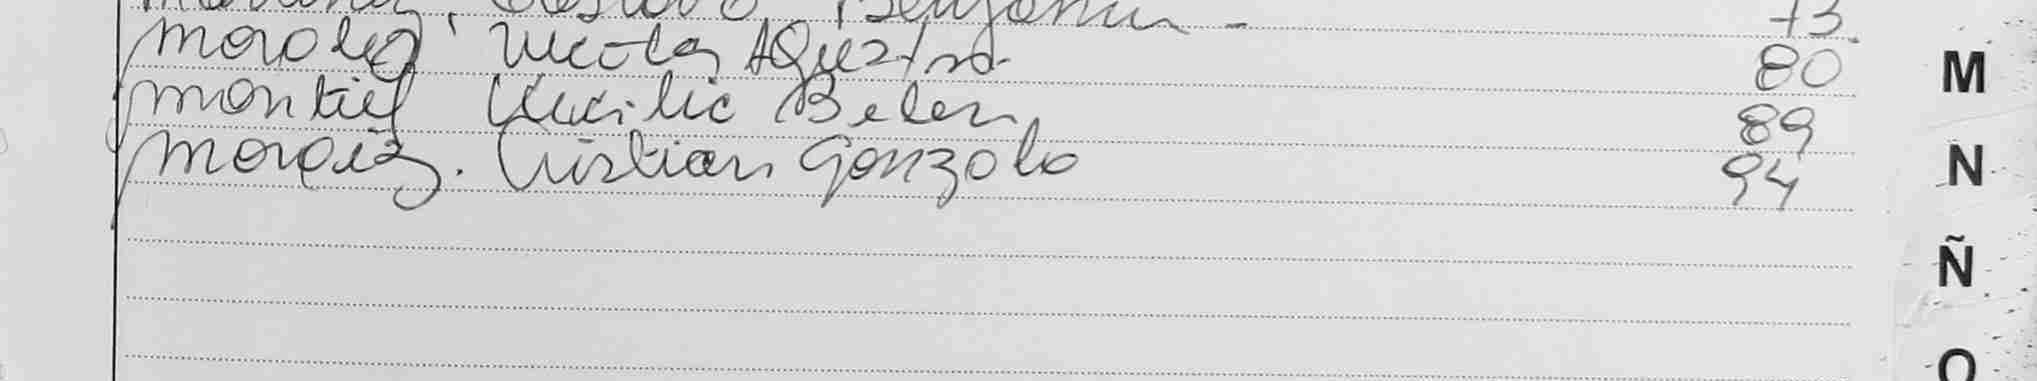 Benjamin - 73.
Morales, Nicolas Agustin. 80
Montiel Cecilia Belen 89
Cristian Gonzalo 94
M
N
Ñ
O